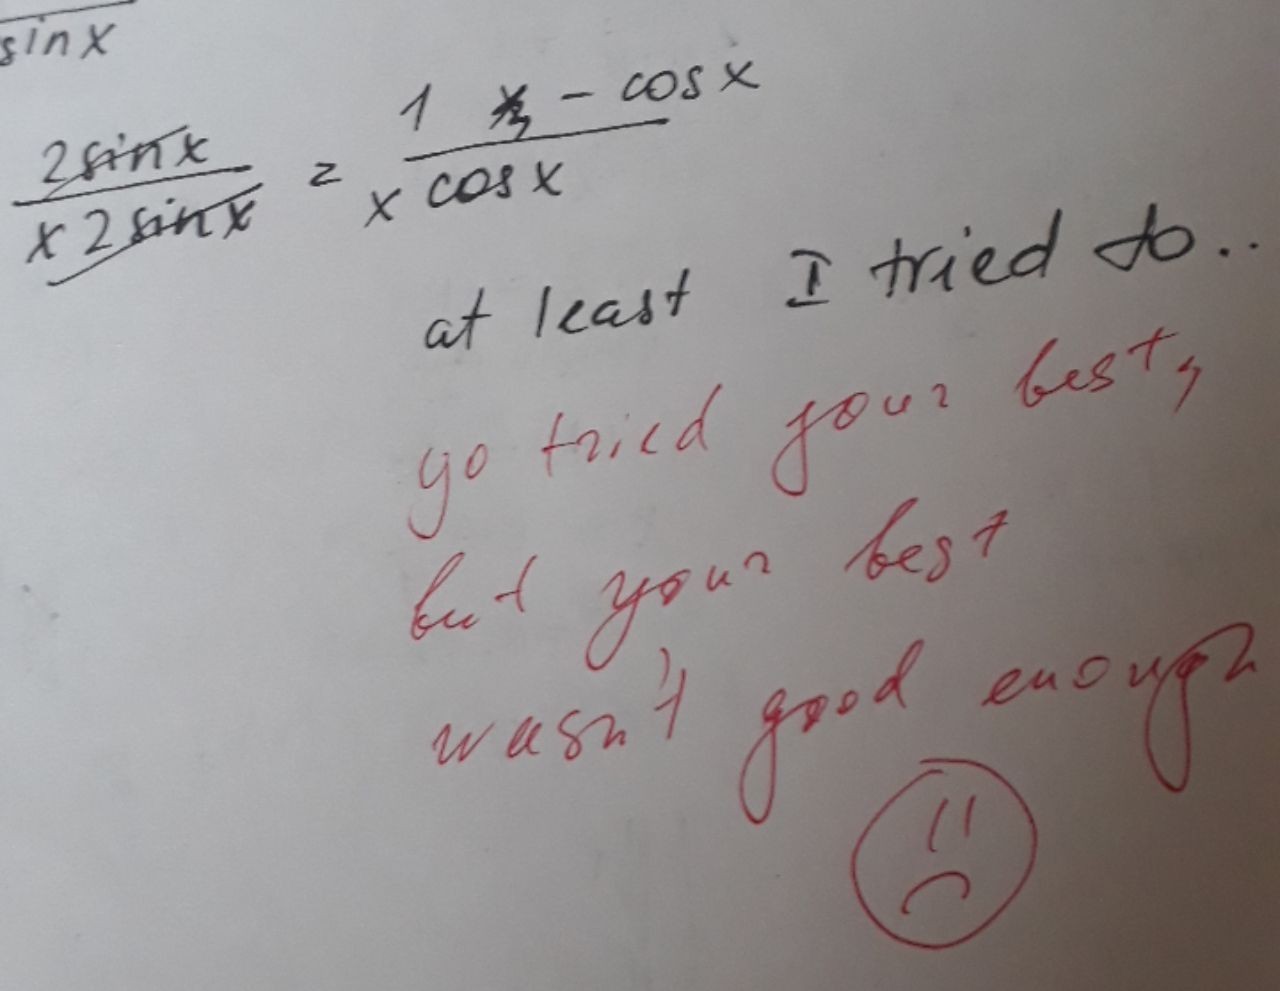 sinx
2sinx / x2sinx = 1 - cosx / x cosx
at least I tried to..
yo tried your best,
but your best
wasn't good enough